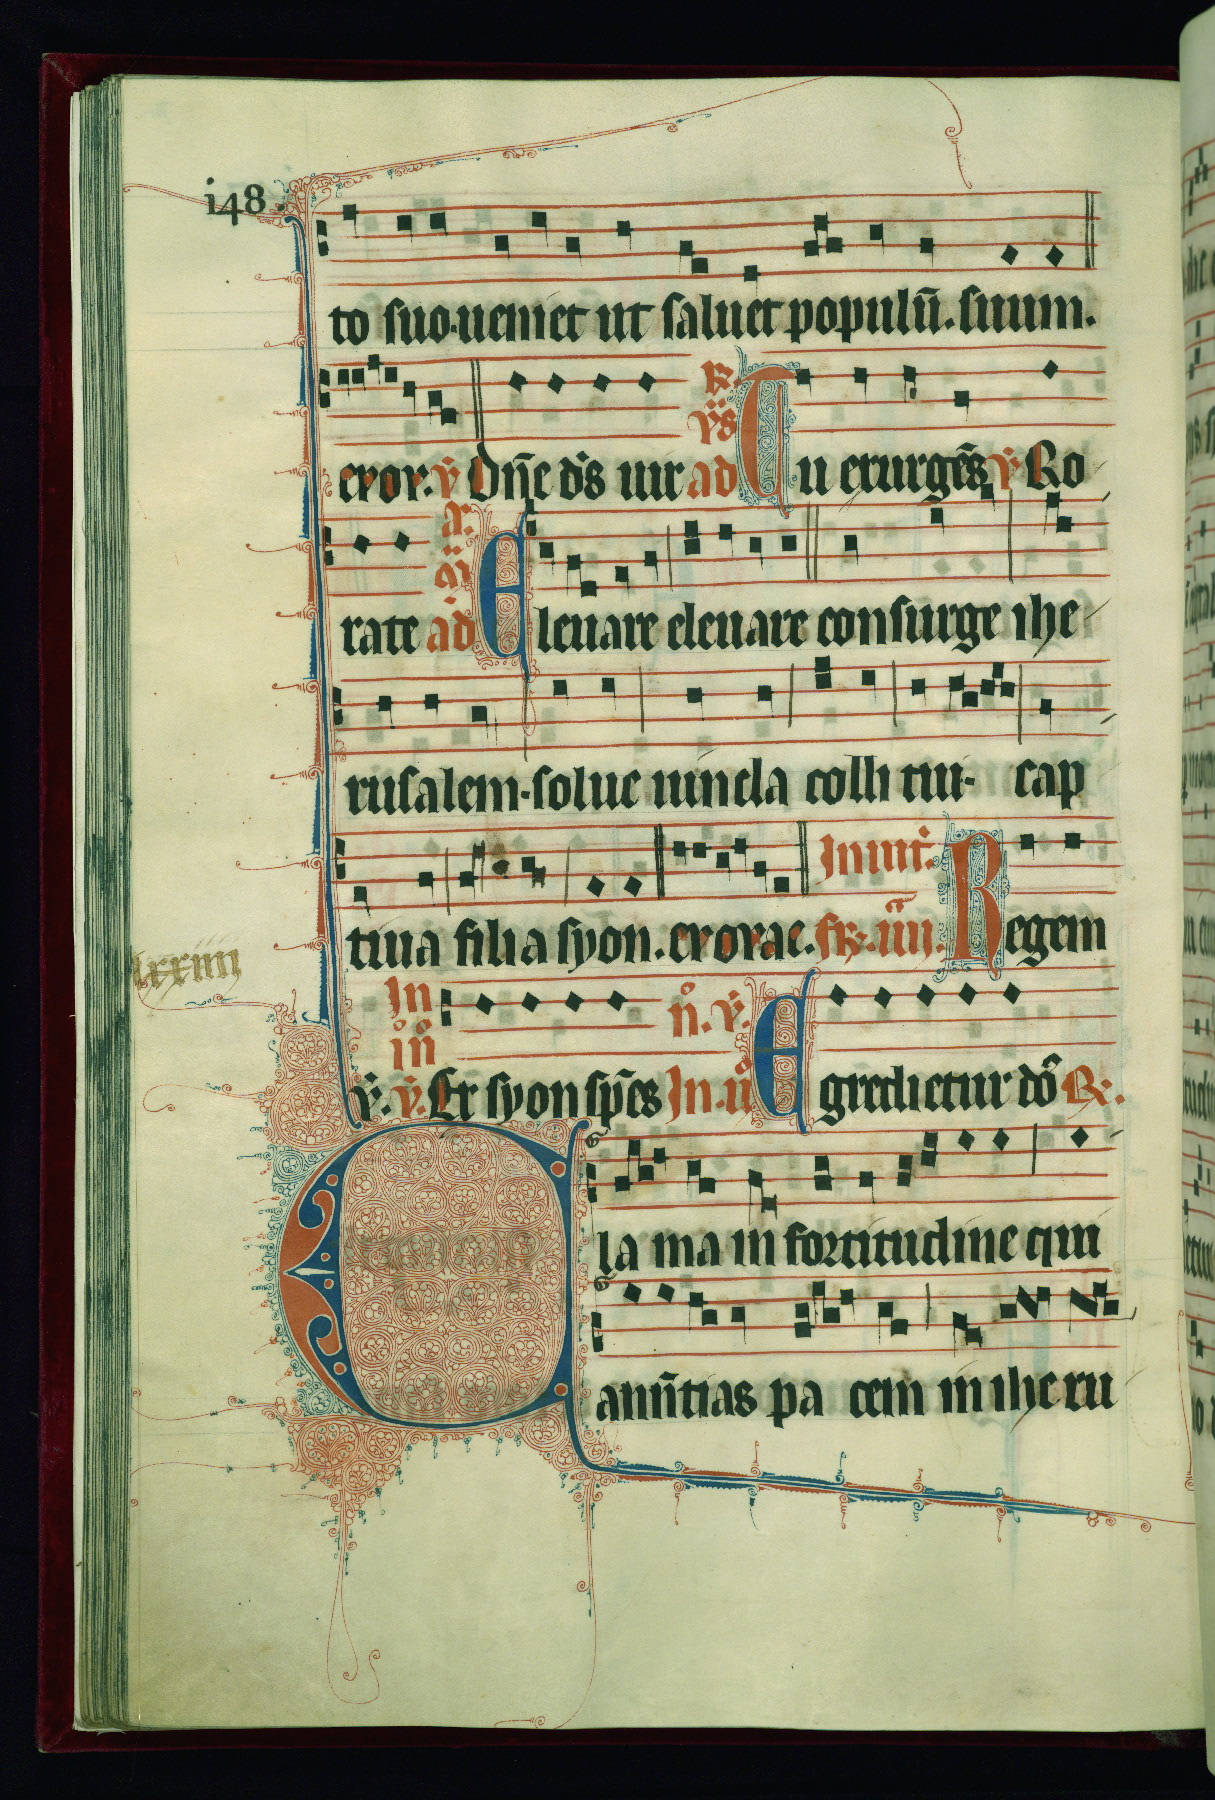 i48.
to suo.ueniet ut saluet populū. suum.
R. v̄s
exor. v̄ Dn̄e d̄s uir ad Tu exurgēs v̄ Ro
A. M
rate ad Eleuare eleuare consurge ihe
rusalem. solue uincla colli tui. cap
Inuit.
tiua filia syon. exorae. fr. iiii. Regem
lxxiiii
In n̊. v̄.
v̄. v̄. Ex syon sp̄es In. Egredietur do R.
Clama in fortitudine qui
anūtias pacem in iheru